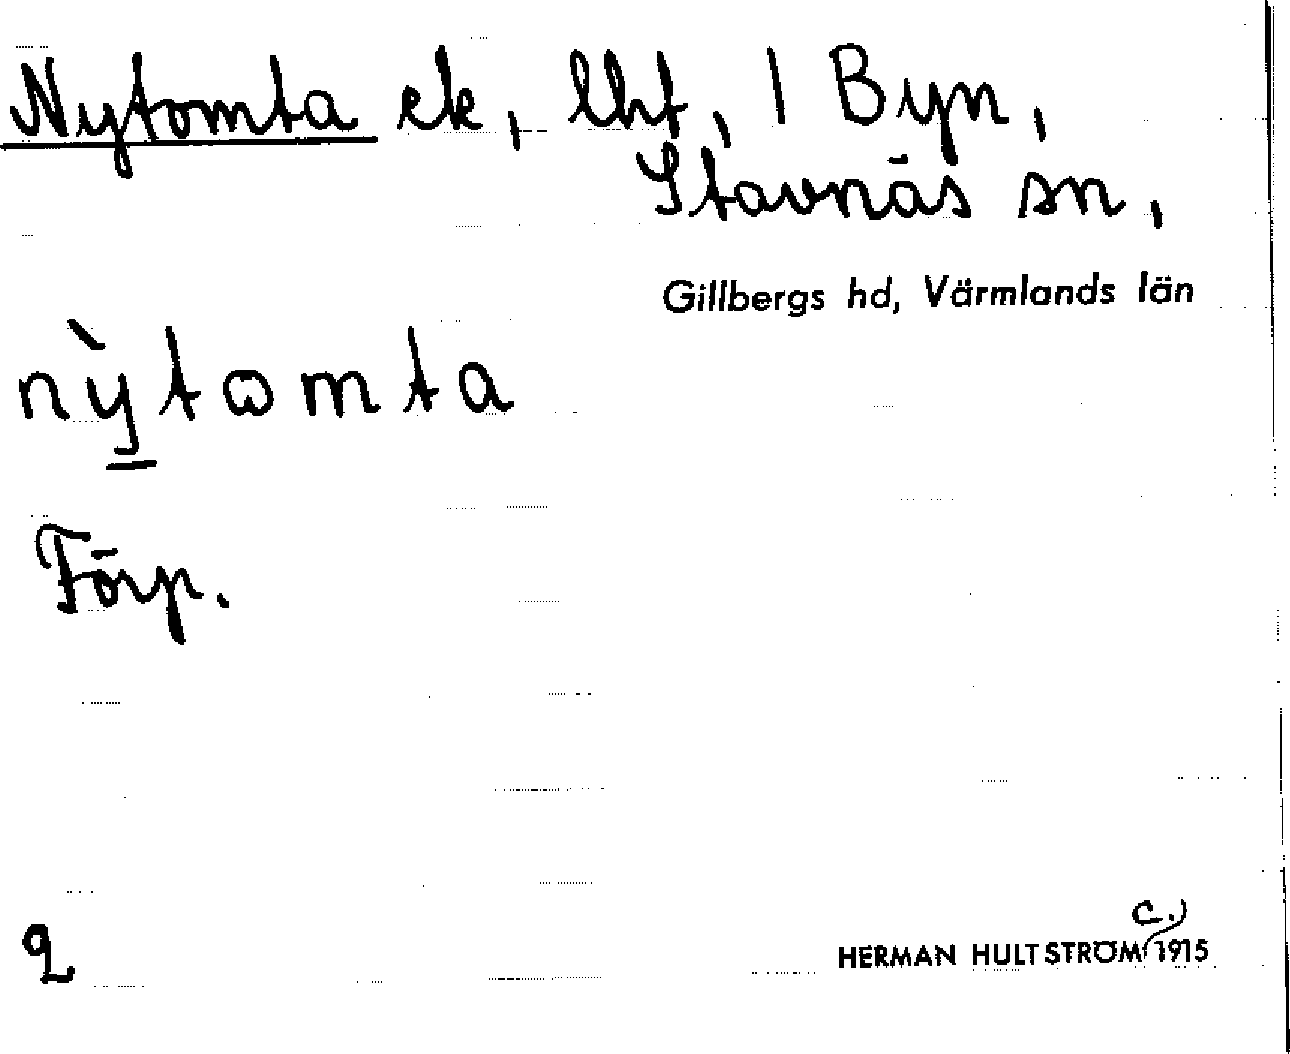 Nytomta ek, lht, 1 Byn,
Stavnäs sn,
Gillbergs hd, Värmlands län
nỳtωmta
Förp.
2
HERMAN HULTSTRÖM c. 1915